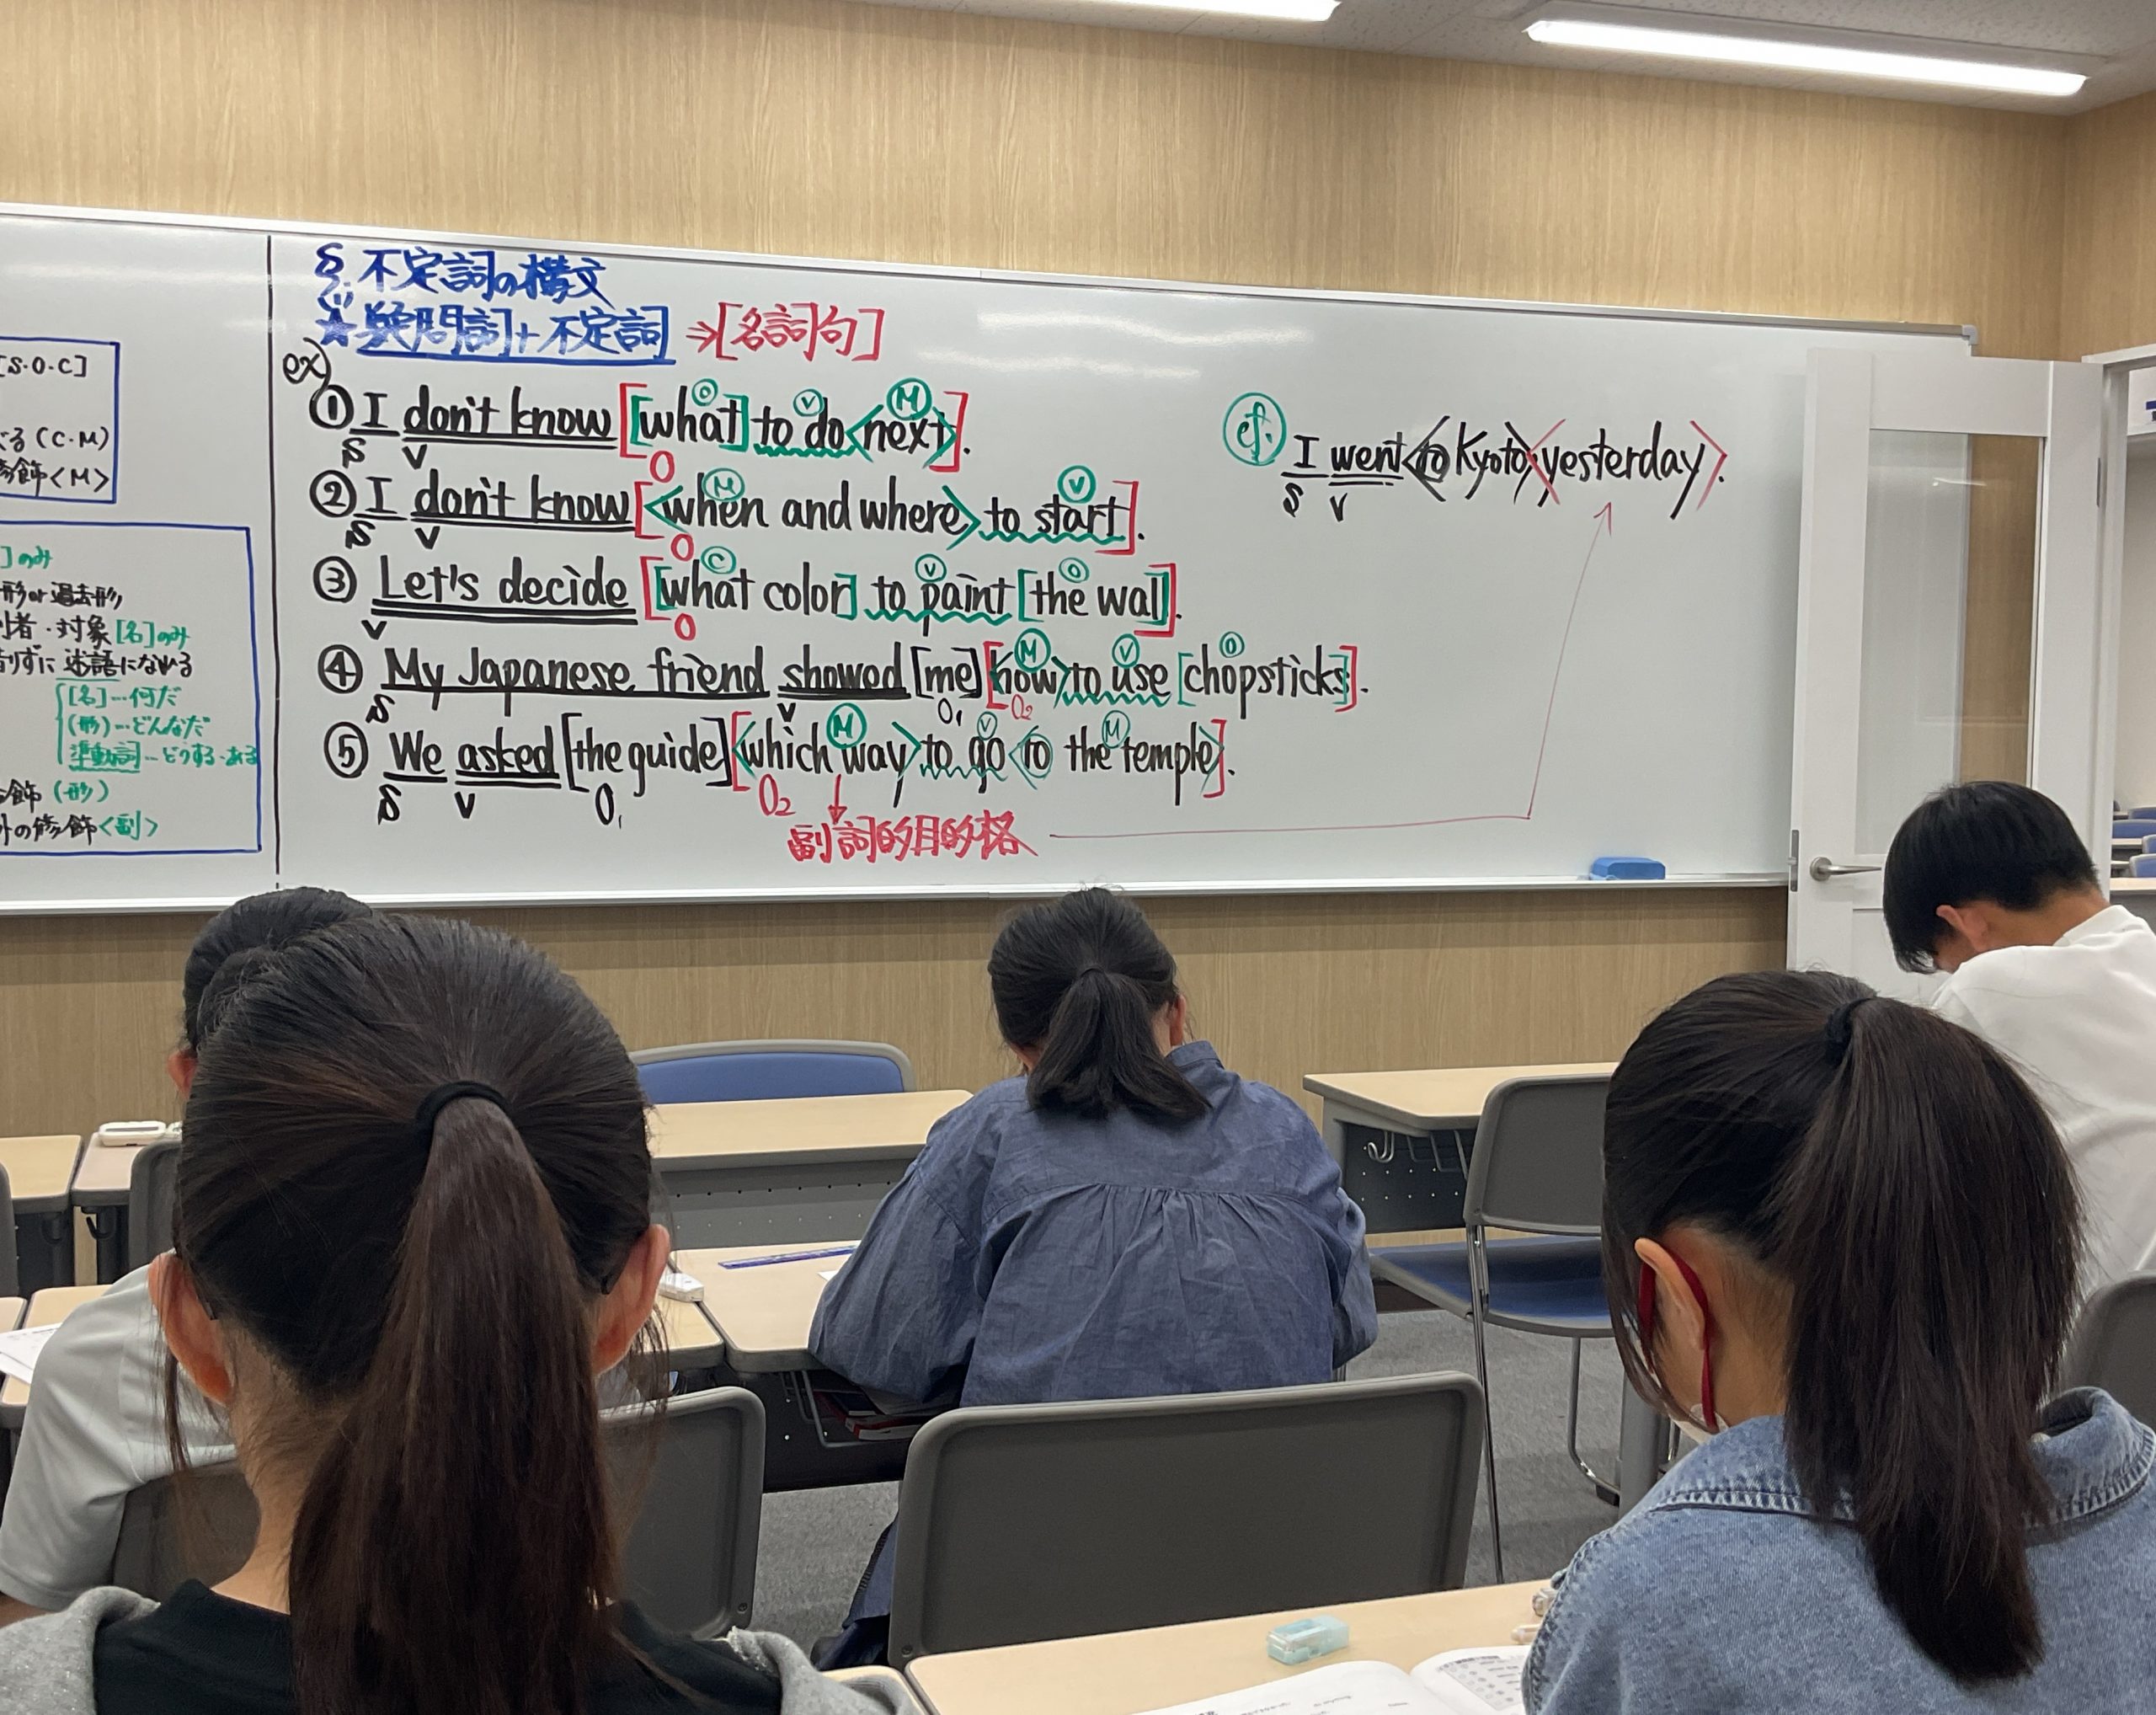 [S・O・C]
る(C・M)
飾<M>
]のみ
形or過去形
者・対象[名]のみ
ずに述語になれる
[名]…何だ
(形)…どんなだ
準動詞…どうする・ある
飾(形)
外の修飾<副>
§ 不定詞の構文
★疑問詞+不定詞 ⇒[名詞句]
ex)
O V M
① I don't know [[what] to do <next>].
S V O
M V
② I don't know [<when and where> to start].
S V O
C V O
③ Let's decide [[what color] to paint [the wall]].
V O
M V O
④ My Japanese friend showed [me] [<how> to use [chopsticks]].
S V O₁ O₂
M V M
⑤ We asked [the guide] [<which way> to go <to the temple>].
S V O₁ O₂
副詞的目的格
cf. I went <to Kyoto> <yesterday>.
S V